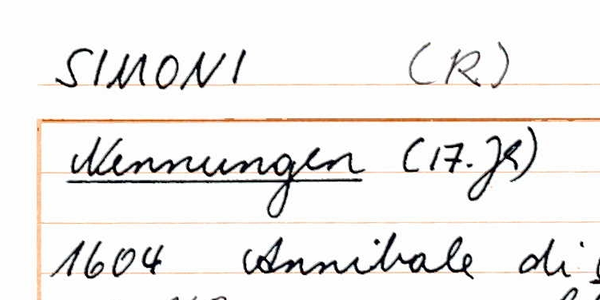 SIMONI (R)
Nennungen (17. Jh)
1604 Annibale di